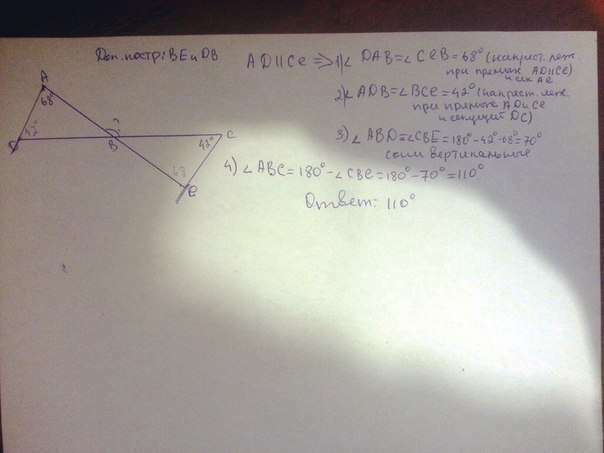 Доп. постр: BE и DB
AD||Ce => 1) ∠ DAB = ∠ CeB = 68° (накрест. леж
при прямых AD||Ce)
и сек Ae
2) ∠ ADB = ∠ BCe = 42° (накрест. леж.
при прямых AD и Ce
и секущей DC)
3) ∠ ABD = ∠ CBE = 180° - 42° - 68° = 70°
вертикальные
4) ∠ ABC = 180° - ∠ CBe = 180° - 70° = 110°
Ответ: 110°
A
68°
42°
D
?
B
42°
C
68
e